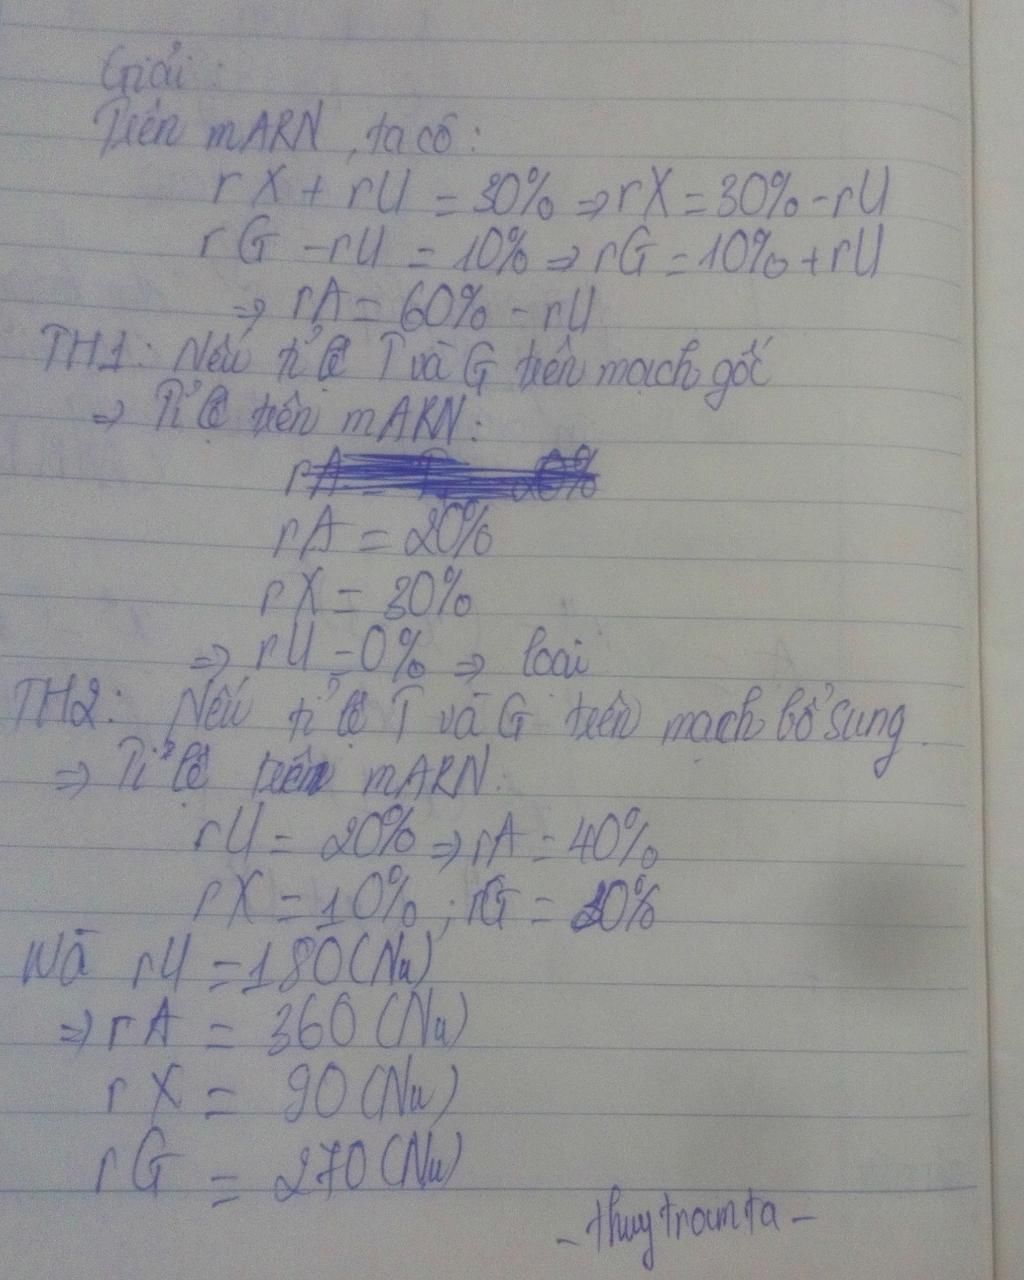 Giải:
Trên mARN, ta có:
rX + rU = 30% => rX = 30% - rU
rG - rU = 10% => rG = 10% + rU
=> rA = 60% - rU
TH1: Nếu tỉ lệ T và G trên mạch gốc
=> Tỉ lệ trên mARN:
rA = 20%
rX = 30%
=> rU = 0% => loại
TH2: Nếu tỉ lệ T và G trên mạch bổ sung.
=> Tỉ lệ trên mARN.
rU = 20% => rA = 40%
rX = 10%; rG = 30%
Mà rU = 180 (Nu)
=> rA = 360 (Nu)
rX = 90 (Nu)
rG = 270 (Nu)
- thuytramta -